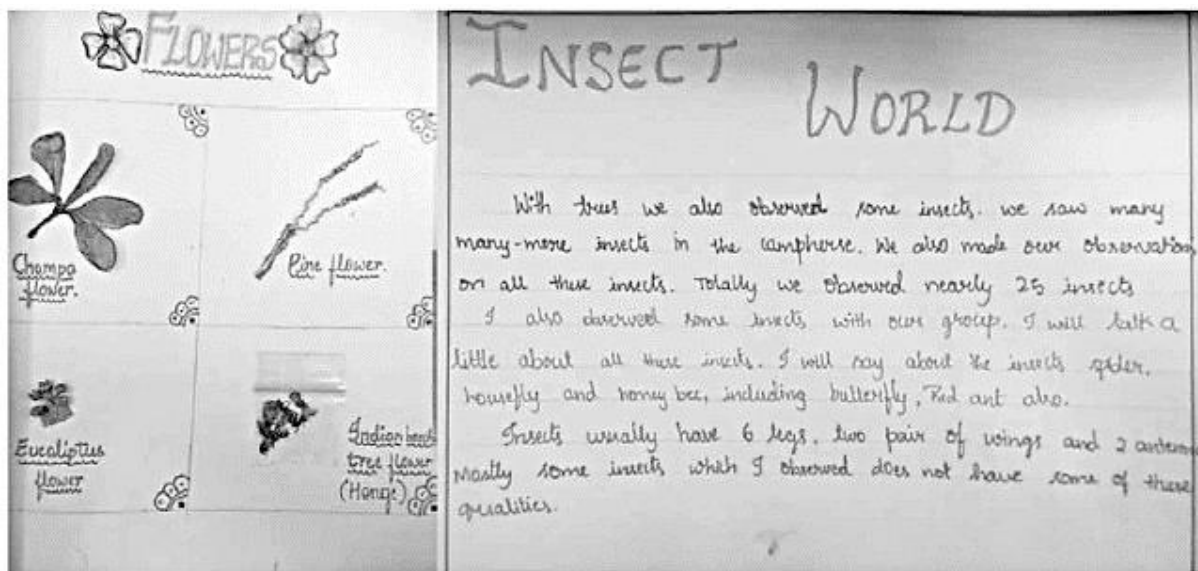 FLOWERS
Champa
flower.
Pine flower.
Eucaliptus
flower
Indian beech
tree flower
(Honge)
INSECT
WORLD
With trees we also observed some insects. we saw many
many-more insects in the campherse. We also made our observation
on all these insects. Totally we observed nearly 25 insects
I also observed some insects with our group. I will talk a
little about all these insects. I will say about the insects spider,
housefly and honey bee, including butterfly, Red ant also.
Insects usually have 6 legs, two pair of wings and 2
Mostly some insects which I observed does not have some of these
qualities.